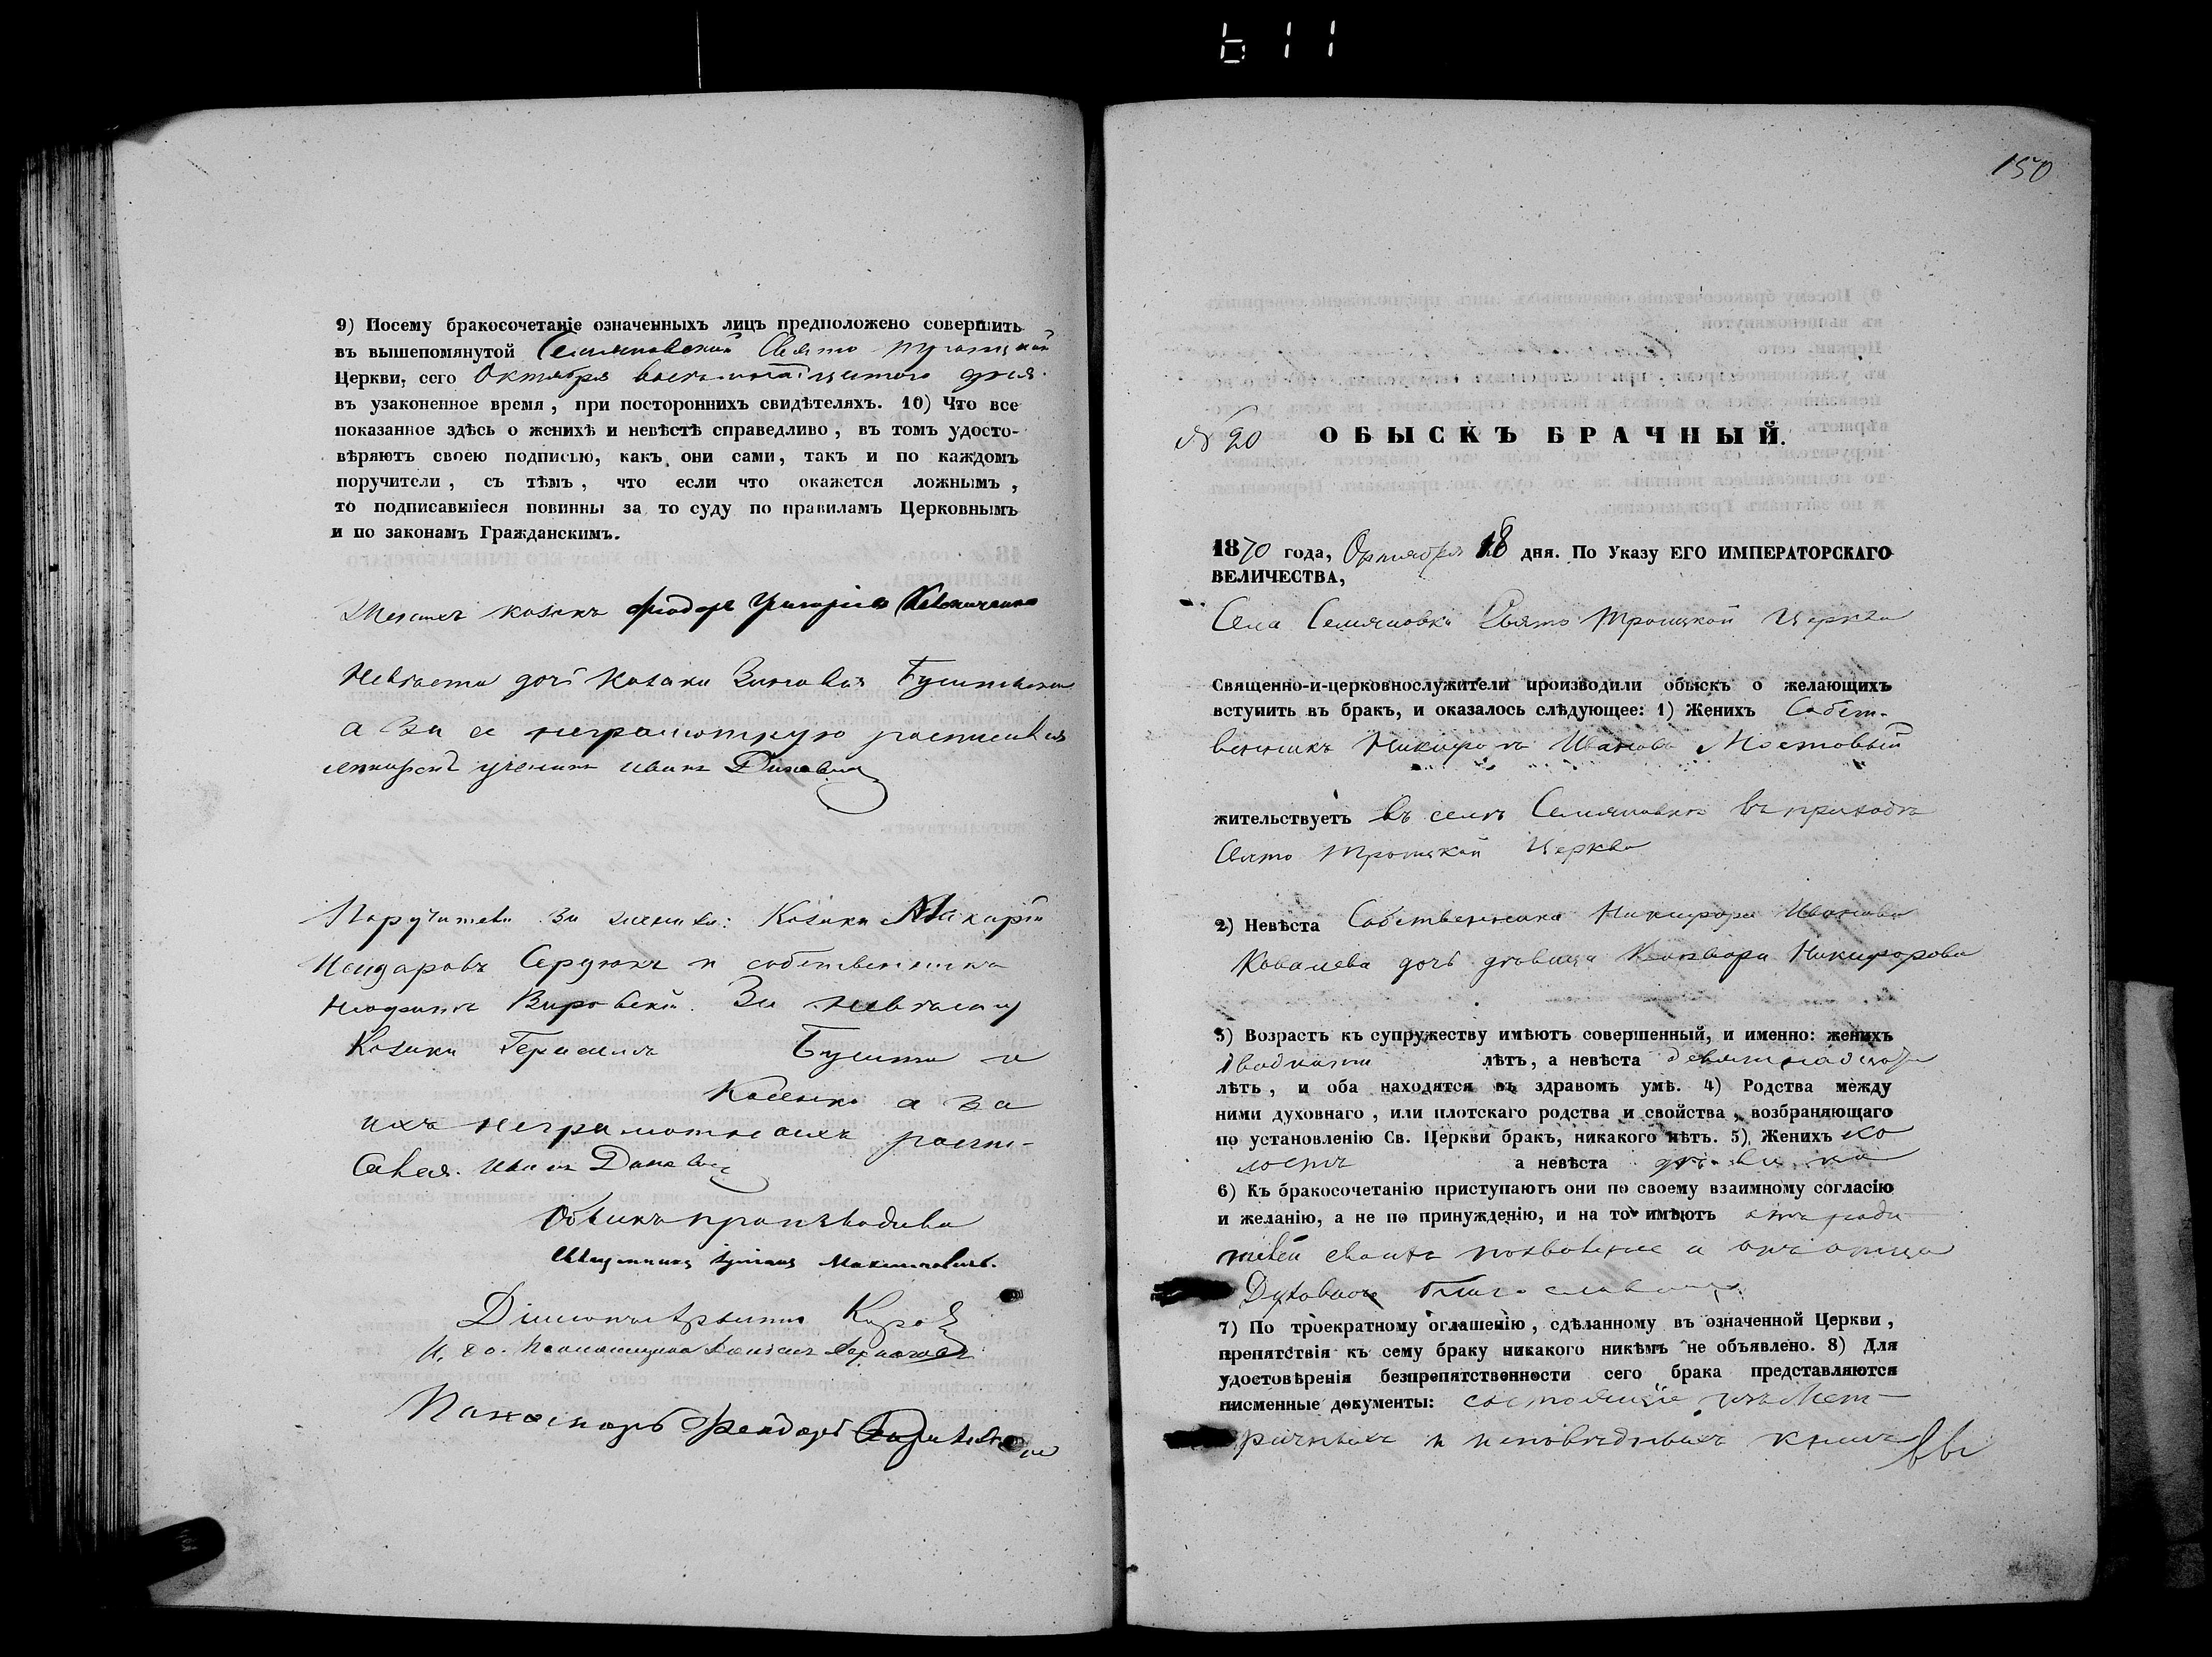 611
9) Посему бракосочетаніе означенныхъ лицъ предположено совершить
въ вышепомянутой Семяновской Свято Троицкой
Церкви, сего Октября восемнадцатого дня
въ узаконенное время, при постороннихъ свидѣтеляхъ. 10) Что все
показанное здѣсь о женихѣ и невѣстѣ справедливо, въ томъ удосто-
вѣряютъ своею подписью, какъ они сами, такъ и по каждомъ
поручители, съ тѣмъ, что если что окажется ложнымъ,
то подписавшіеся повинны за то суду по правиламъ Церковнымъ
и по законамъ Гражданскимъ.
Женихъ козакъ Фіодоръ Григоріевъ
Невѣста дочь козака
а за ее неграмотную росписався
ученикъ Иванъ
Поручители за жениха: Козаки Макарій
Сердюкъ и собственникъ
За невѣсту
Козаки Герасимъ и
а за
ихъ неграмотныхъ роспи-
савея. Иванъ
Обыскъ производили
Священникъ Максимовичъ.
И. до. Пономаря
Паномарь Феодоръ
150
№ 20 ОБЫСКЪ БРАЧНЫЙ.
1870 года, Октября 18 дня. По Указу ЕГО ИМПЕРАТОРСКАГО
ВЕЛИЧЕСТВА,
Села Семяновки Свято Троицкой Церкви
Священно-и-церковнослужители производили обыскъ о желающихъ
вступить въ бракъ, и оказалось слѣдующее: 1) Женихъ Собст-
венникъ Никифоръ Ивановъ Мостовый
жительствуетъ въ селѣ Семяновкѣ въ приходѣ
Свято Троицкой Церкви
2) Невѣста Собственника Никифора Иванова
Ковалева дочь дѣвица Никифорова
3) Возрастъ къ супружеству имѣютъ совершенный, и именно: женихъ
двадцати лѣтъ, а невѣста девятнадцати
лѣтъ, и оба находятся въ здравомъ умѣ. 4) Родства между
ними духовнаго, или плотскаго родства и свойства, возбраняющаго
по установленію Св. Церкви бракъ, никакого нѣтъ. 5) Женихъ хо
лостъ а невѣста дѣвица
6) Къ бракосочетанію приступаютъ они по своему взаимному согласію
и желанію, а не по принужденію, и на то имѣютъ отъ роди
телей своихъ позволение и отъ отца
Духовнаго
7) По троекратному оглашенію, сдѣланному въ означенной Церкви,
препятствія къ сему браку никакого никѣмъ не объявлено. 8) Для
удостовѣренія безпрепятственности сего брака представляются
писменные документы: состоящіе изъ Мет-
ричныхъ и исповѣдныхъ книгъ